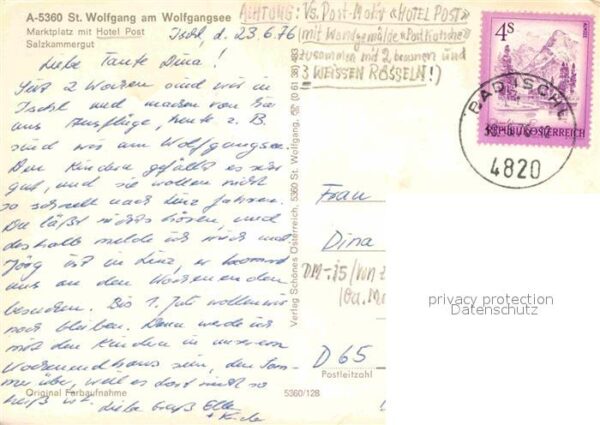 A-5360 St. Wolfgang am Wolfgangsee
Marktplatz mit Hotel Post
Salzkammergut
Ischl, d. 23.6.76
Liebe Tante Dina!
Seit 2 Wochen sind wir in
Ischl und machen von hier
aus Ausflüge, heute z. B.
sind wir am Wolfgangsee.
Den Kindern gefällt es sehr
gut, und sie wollen nicht
so schnell nach Linz fahren.
Du läßt nichts hören, und
deshalb melde ich mich mal
Jörg ist in Linz, er kommt
uns an den Wochenenden
besuchen. Bis 1. Juli wollen wir
noch bleiben. Dann werde ich
mit den Kindern in unserem
Wochenendhaus sein, den Som-
mer über, weil es dort nicht so
heiß ist. Liebe Grüße
Original Farbaufnahme
5360/128
Verlag Schönes Österreich, 5360 St. Wolfgang, (0 61 38) 483
ACHTUNG: Vs. Post-Motiv «HOTEL POST»
(mit Wandgemälde «Postkutsche»
zusammen mit 2 braunen und
3 WEISSEN RÖSSELN!)
4 S
REPUBLIK ÖSTERREICH
BAD ISCHL
4820
Frau
Dina
DM-15
D 65
Postleitzahl
privacy protection
Datenschutz